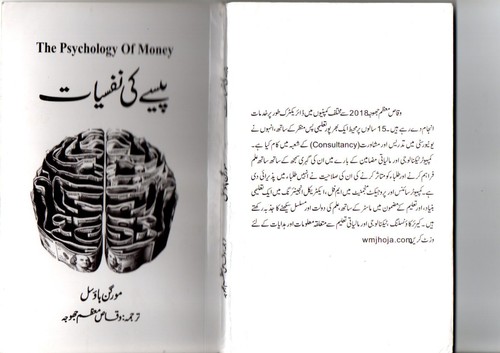 The Psychology Of Money
پیسے کی نفسیات
مورگن ہاؤسل
ترجمہ: وقاص معظم جھوجہ
وقاص معظم جھوجہ 2018 سے مختلف کمپنیوں میں ڈائریکٹر کے طور پر خدمات
انجام دے رہے ہیں۔ 15 سالوں پر محیط ایک بھرپور تعلیمی پس منظر کے ساتھ، انہوں نے
یونیورسٹی میں تدریس اور مشاورت (Consultancy) کے شعبہ میں کام کیا ہے۔
کمپیوٹر ٹیکنالوجی اور مالیاتی مضامین کے بارے میں ان کی گہری سمجھ کے ساتھ ساتھ علم
فراہم کرنے اور طلباء کو متاثر کرنے کی ان کی صلاحیت نے انہیں طلباء میں پذیرائی دی
ہے۔ کمپیوٹر سائنس اور پروجیکٹ مینجمنٹ میں ایم فل، الیکٹریکل انجینئرنگ میں ایک تعلیمی
بنیاد، اور تعلیم کے مضمون میں ماسٹر کے ساتھ، علم کی دولت اور مسلسل سیکھنے کا جذبہ رکھتے
ہیں۔ کیریئر کاؤنسلنگ، ٹیکنالوجی اور مالیاتی تعلیم سے متعلقہ معلومات اور ہدایات کے لئے
وزٹ کریں wmjhoja.com